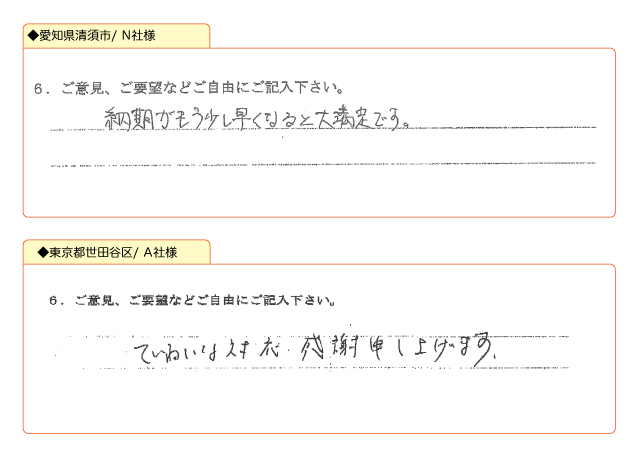 ◆愛知県清須市/ N社様
6．ご意見、ご要望などご自由にご記入下さい。
納期がもう少し早くなると大満足です。
◆東京都世田谷区/ A社様
6．ご意見、ご要望などご自由にご記入下さい。
ていねいな対応、感謝申し上げます。